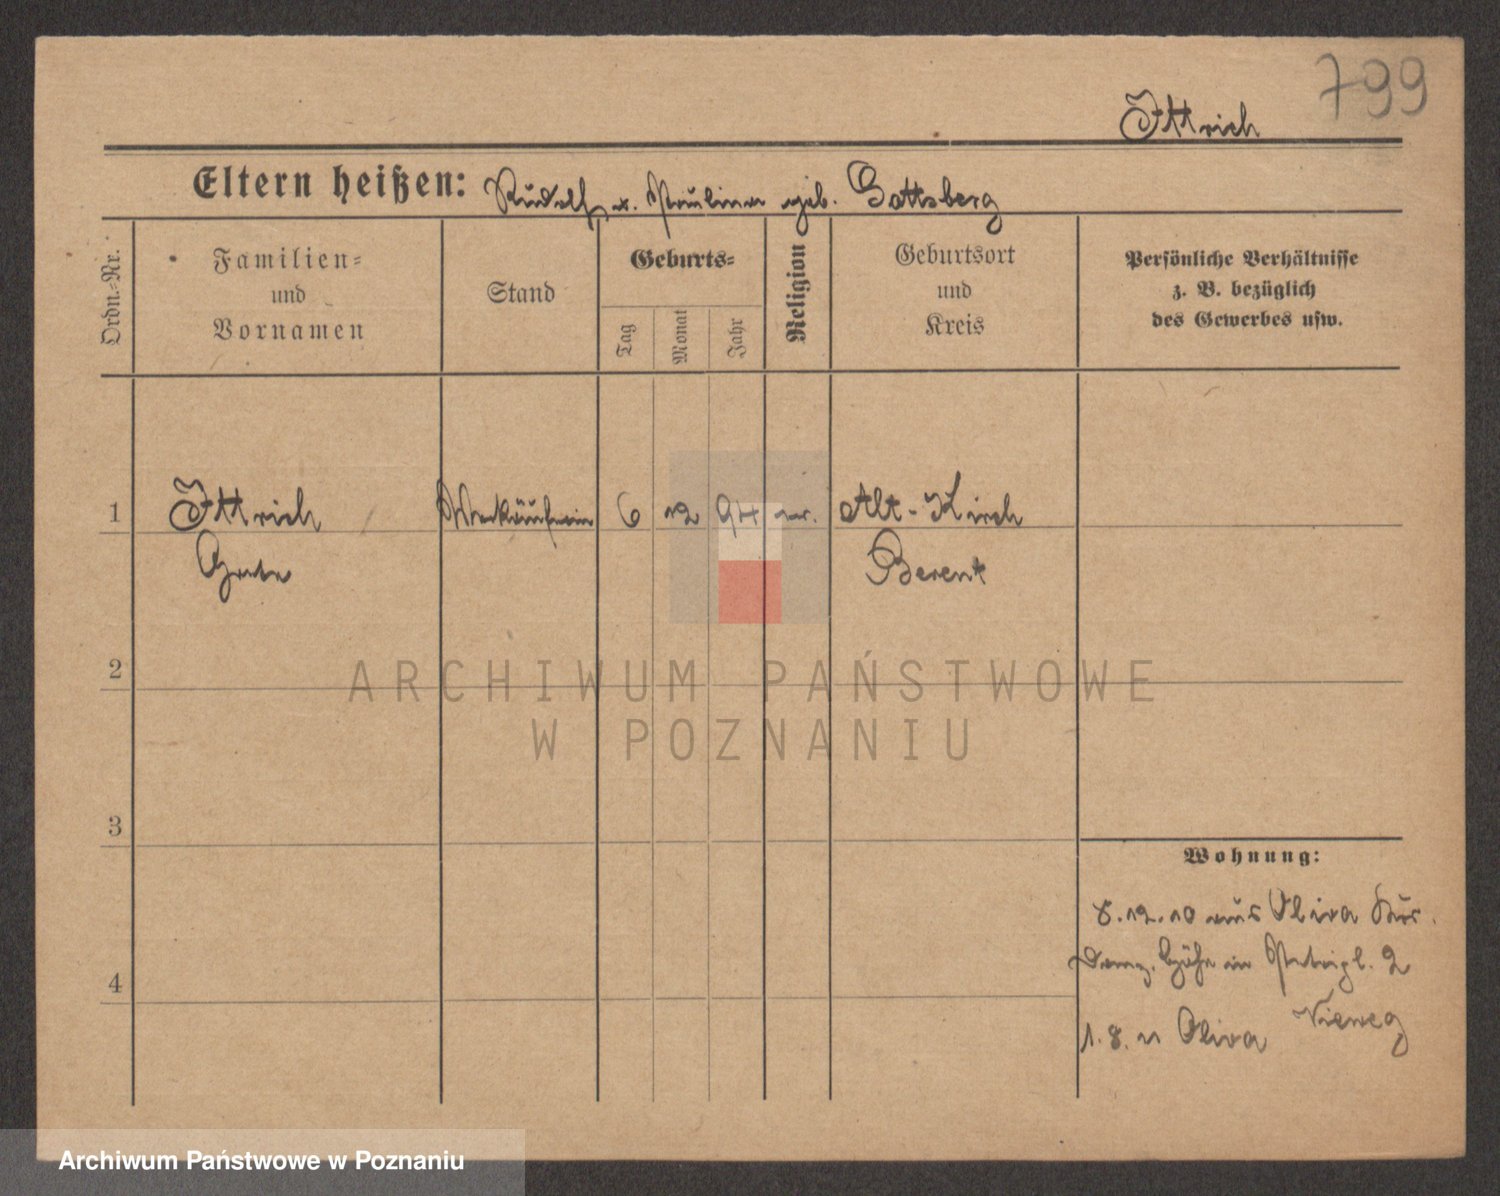 799
Ittrich
Eltern heißen: Rudolf u. Pauline geb. Gottsberg
Ordn.-Nr.
Familien-
und
Vornamen
Stand
Geburts-
Tag
Monat
Jahr
Religion
Geburtsort
und
Kreis
Persönliche Verhältnisse
z. B. bezüglich
des Gewerbes usw.
1 Ittrich Verkäuferin 6 12 94 ev. Alt-Kisch
Grete Berent
2
ARCHIWUM PAŃSTWOWE
W POZNANIU
3
Wohnung:
8.12.10 aus Oliva Kr.
Danz. Höhe in Petripl. 2
4
Vieweg
1.8.11 Oliva
Archiwum Państwowe w Poznaniu